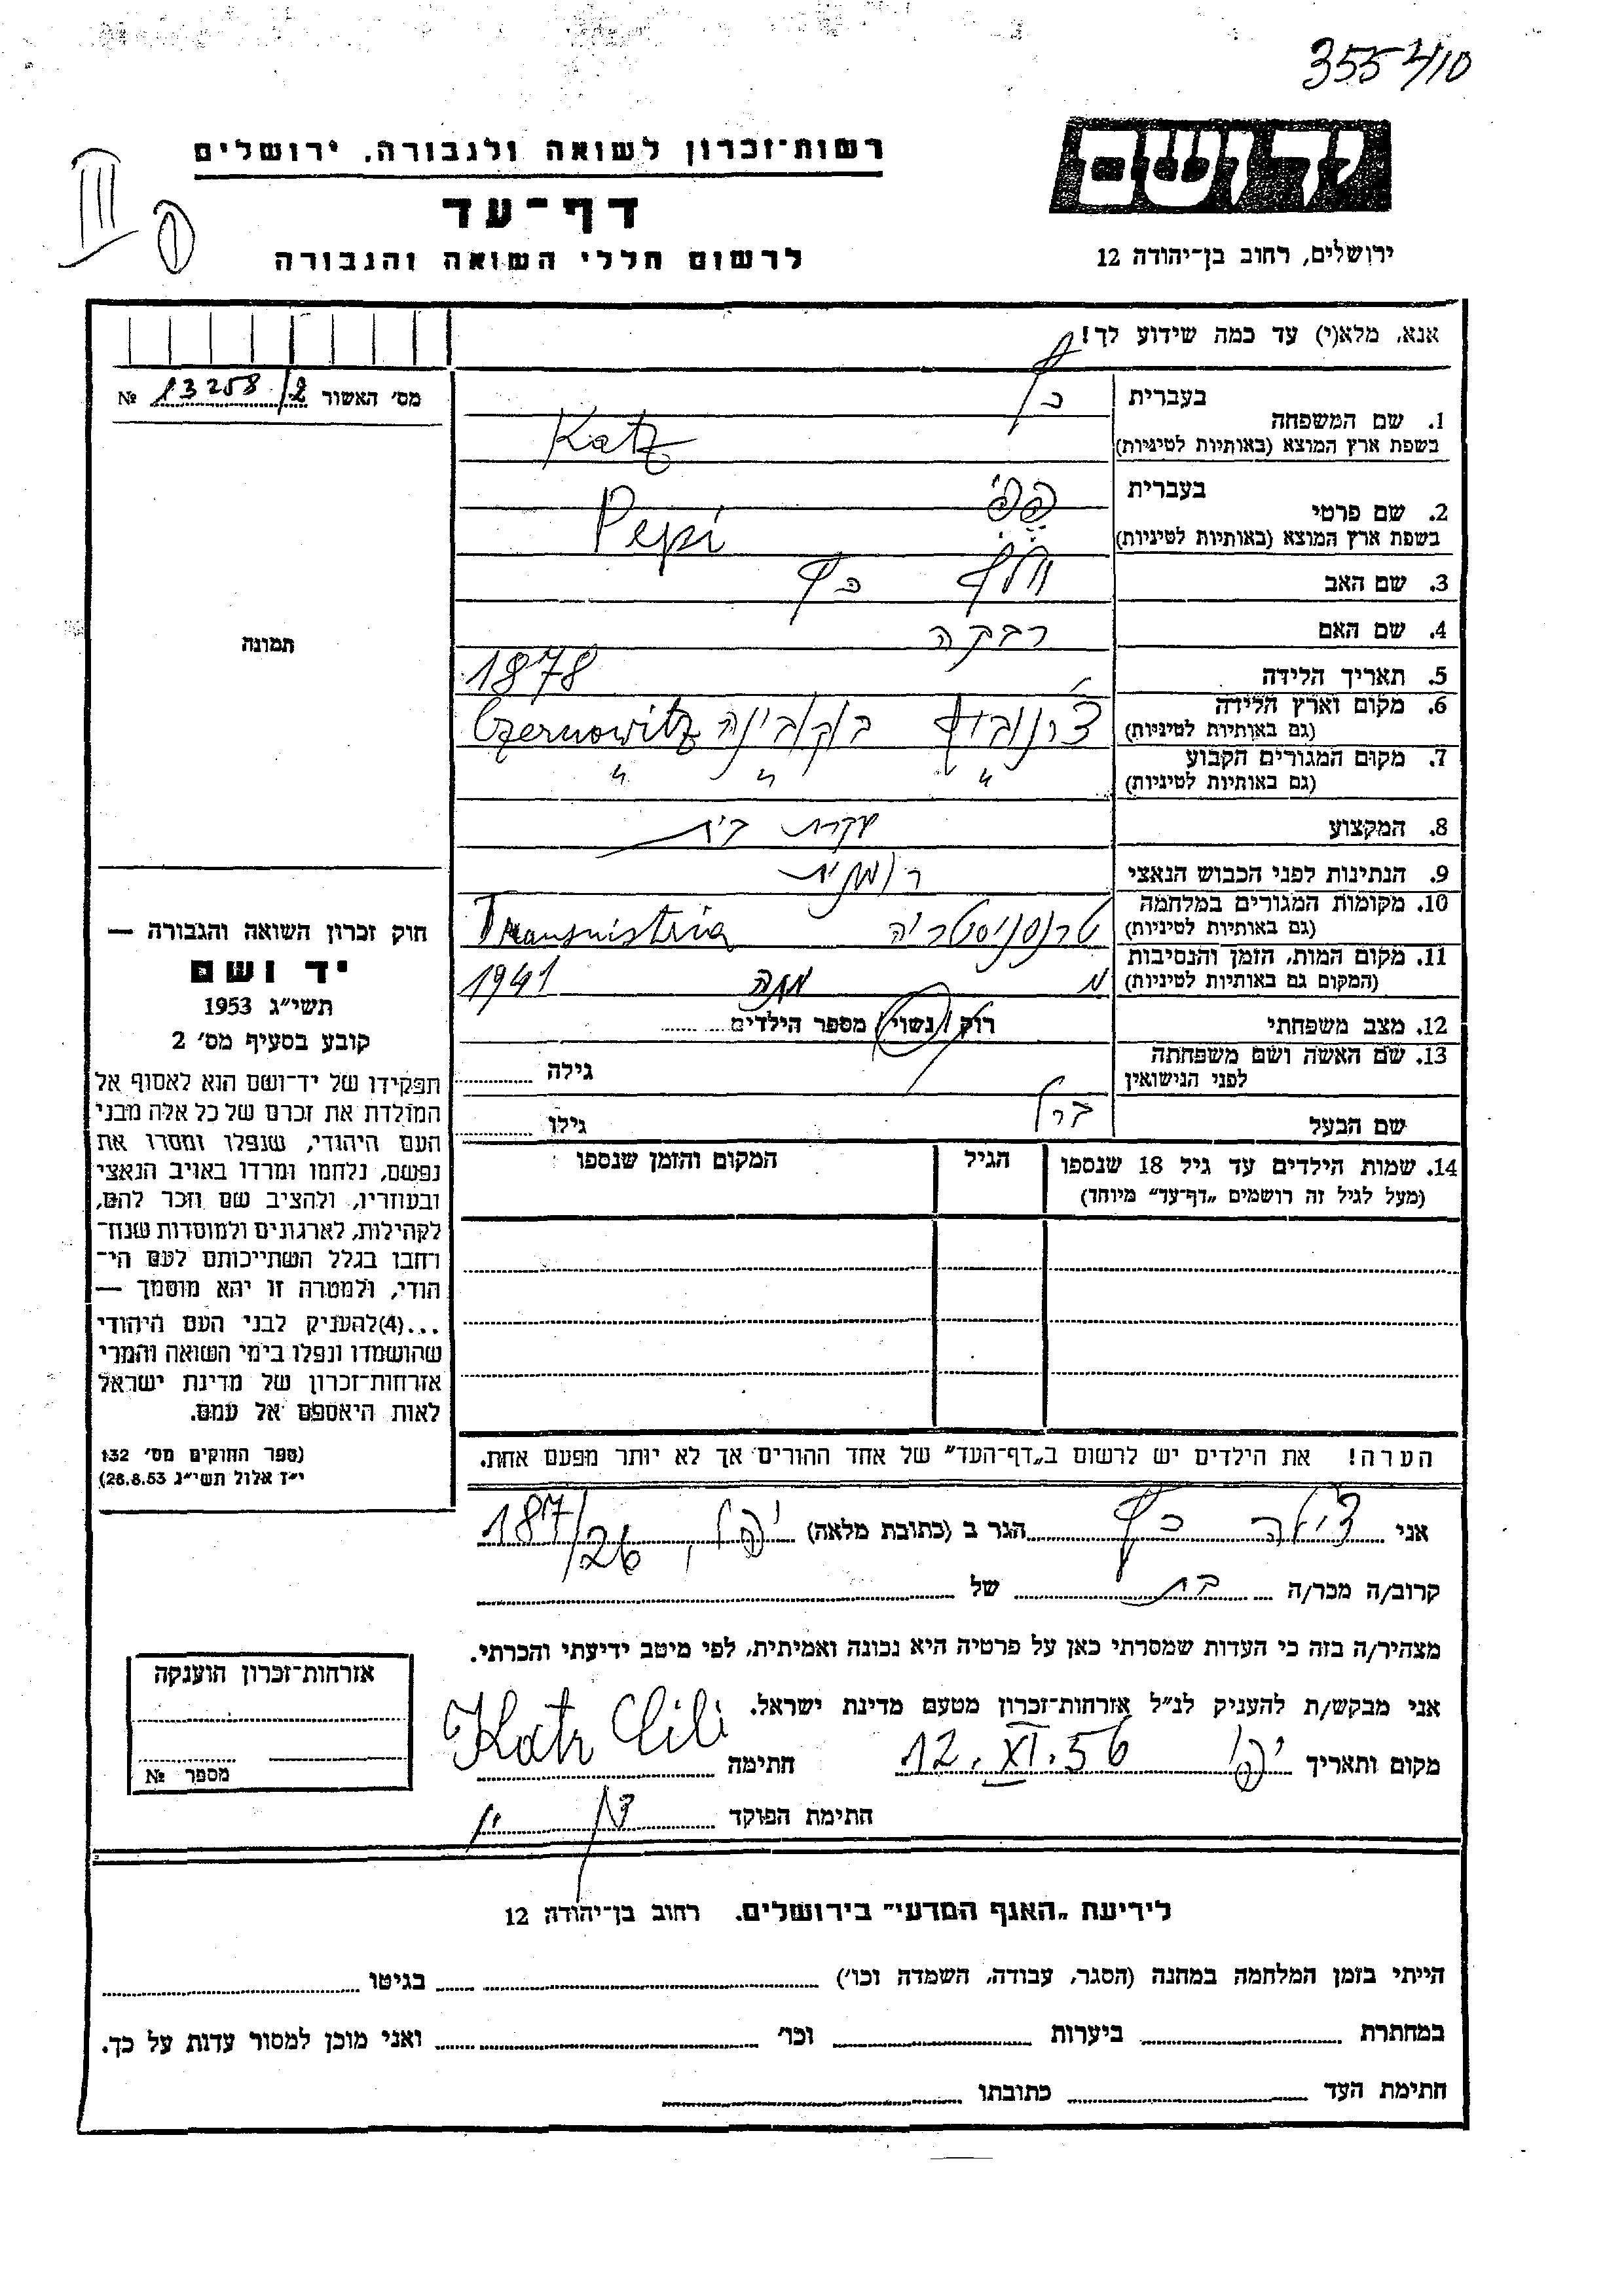 355 2/10
יד ושם
רשות־זכרון לשואה ולגבורה. ירושלים
דף־עד
לרשום חללי השואה והגבורה
ירושלים, רחוב בן־יהודה 12
אנא. מלא(י) עד כמה שידוע לך!
מס׳ האשור 13258/2 №
1. שם המשפחה
בעברית
כץ
בשפת ארץ המוצא (באותיות לטיניות)
Katz
2. שם פרטי
בעברית
פפי
בשפת ארץ המוצא (באותיות לטיניות)
Pepi
3. שם האב
כץ
4. שם האם
רבקה
5. תאריך הלידה
1878
6. מקום וארץ הלידה
(גם באותיות לטיניות)
צרנוביץ בוקובינה Czernowitz
7. מקום המגורים הקבוע
(גם באותיות לטיניות)
״ ״ ״
8. המקצוע
עקרת בית
9. הנתינות לפני הכבוש הנאצי
רומנית
10. מקומות המגורים במלחמה
(גם באותיות לטיניות)
טרנסניסטריה Transnistria
11. מקום המות. הזמן והנסיבות
(המקום גם באותיות לטיניות)
1941
12. מצב משפחתי
רוק / נשוי / מספר הילדים
13. שם האשה ושם משפחתה
לפני הנישואין
גילה
שם הבעל
גילו
14. שמות הילדים עד גיל 18 שנספו
(מעל לגיל זה רושמים „דף־עד״ מיוחד)
הגיל
המקום והזמן שנספו
הערה! את הילדים יש לרשום ב„דף־העד״ של אחד ההורים אך לא יותר מפעם אחת.
תמונה
חוק זכרון השואה והגבורה —
יד ושם
תשי״ג 1953
קובע בסעיף מס׳ 2
תפקידו של יד־ושם הוא לאסוף אל
המולדת את זכרם של כל אלה מבני
העם היהודי, שנפלו ומסרו את
נפשם, נלחמו ומרדו באויב הנאצי
ובעוזריו, ולהציב שם וזכר להם,
לקהילות, לארגונים ולמוסדות שנח־
רחבו בגלל השתייכותם לעם הי־
הודי, ולמטרה זו יהא מוסמך —
...(4)להעניק לבני העם היהודי
שהושמדו ונפלו בימי השואה והמרי
אזרחות־זכרון של מדינת ישראל
לאות היאספם אל עמם.
(ספר החוקים מס׳ 132
י״ז אלול תשי״ג 28.8.53)
אני צילה כץ הגר ב (כתובת מלאה) יפו, 187/26
קרוב/ה מכר/ה בת של
מצהיר/ה בזה כי העדות שמסרתי כאן על פרטיה היא נכונה ואמיתית, לפי מיטב ידיעתי והכרתי.
אני מבקש/ת להעניק לנ״ל אזרחות־זכרון מטעם מדינת ישראל.
מקום ותאריך יפו 12.XI.56 חתימה Katz Cili
חתימת הפוקד
אזרחות־זכרון הוענקה
מספר №
לידיעת „האגף המדעי״ בירושלים. רחוב בן־יהודה 12
הייתי בזמן המלחמה במחנה (הסגר, עבודה, השמדה וכו׳) בגיטו
במחתרת ביערות וכו׳ ואני מוכן למסור עדות על כך.
חתימת העד כתובתו